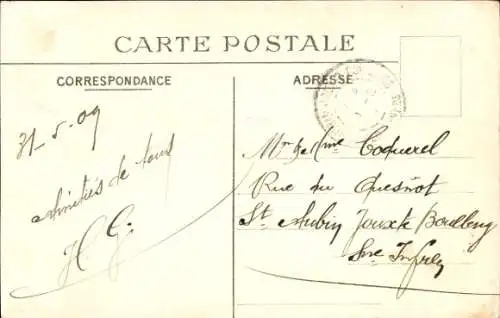 CARTE POSTALE
CORRESPONDANCE
31-5-09
Amitiés de tous
H G.
ADRESSE
Mr & Mme Coquerel
Rue du Quesnot
St Aubin Jouxte Boulleng
Sne Infre